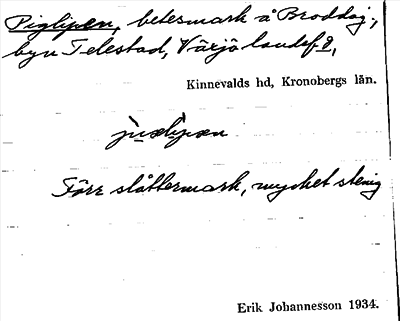 Piglipen, betesmark å Broddaj.,
byn Telestad, Växjö landsf. 8,
Kinnevalds hd, Kronobergs län.
Förr slåttermark, mycket stenig
Erik Johannesson 1934.